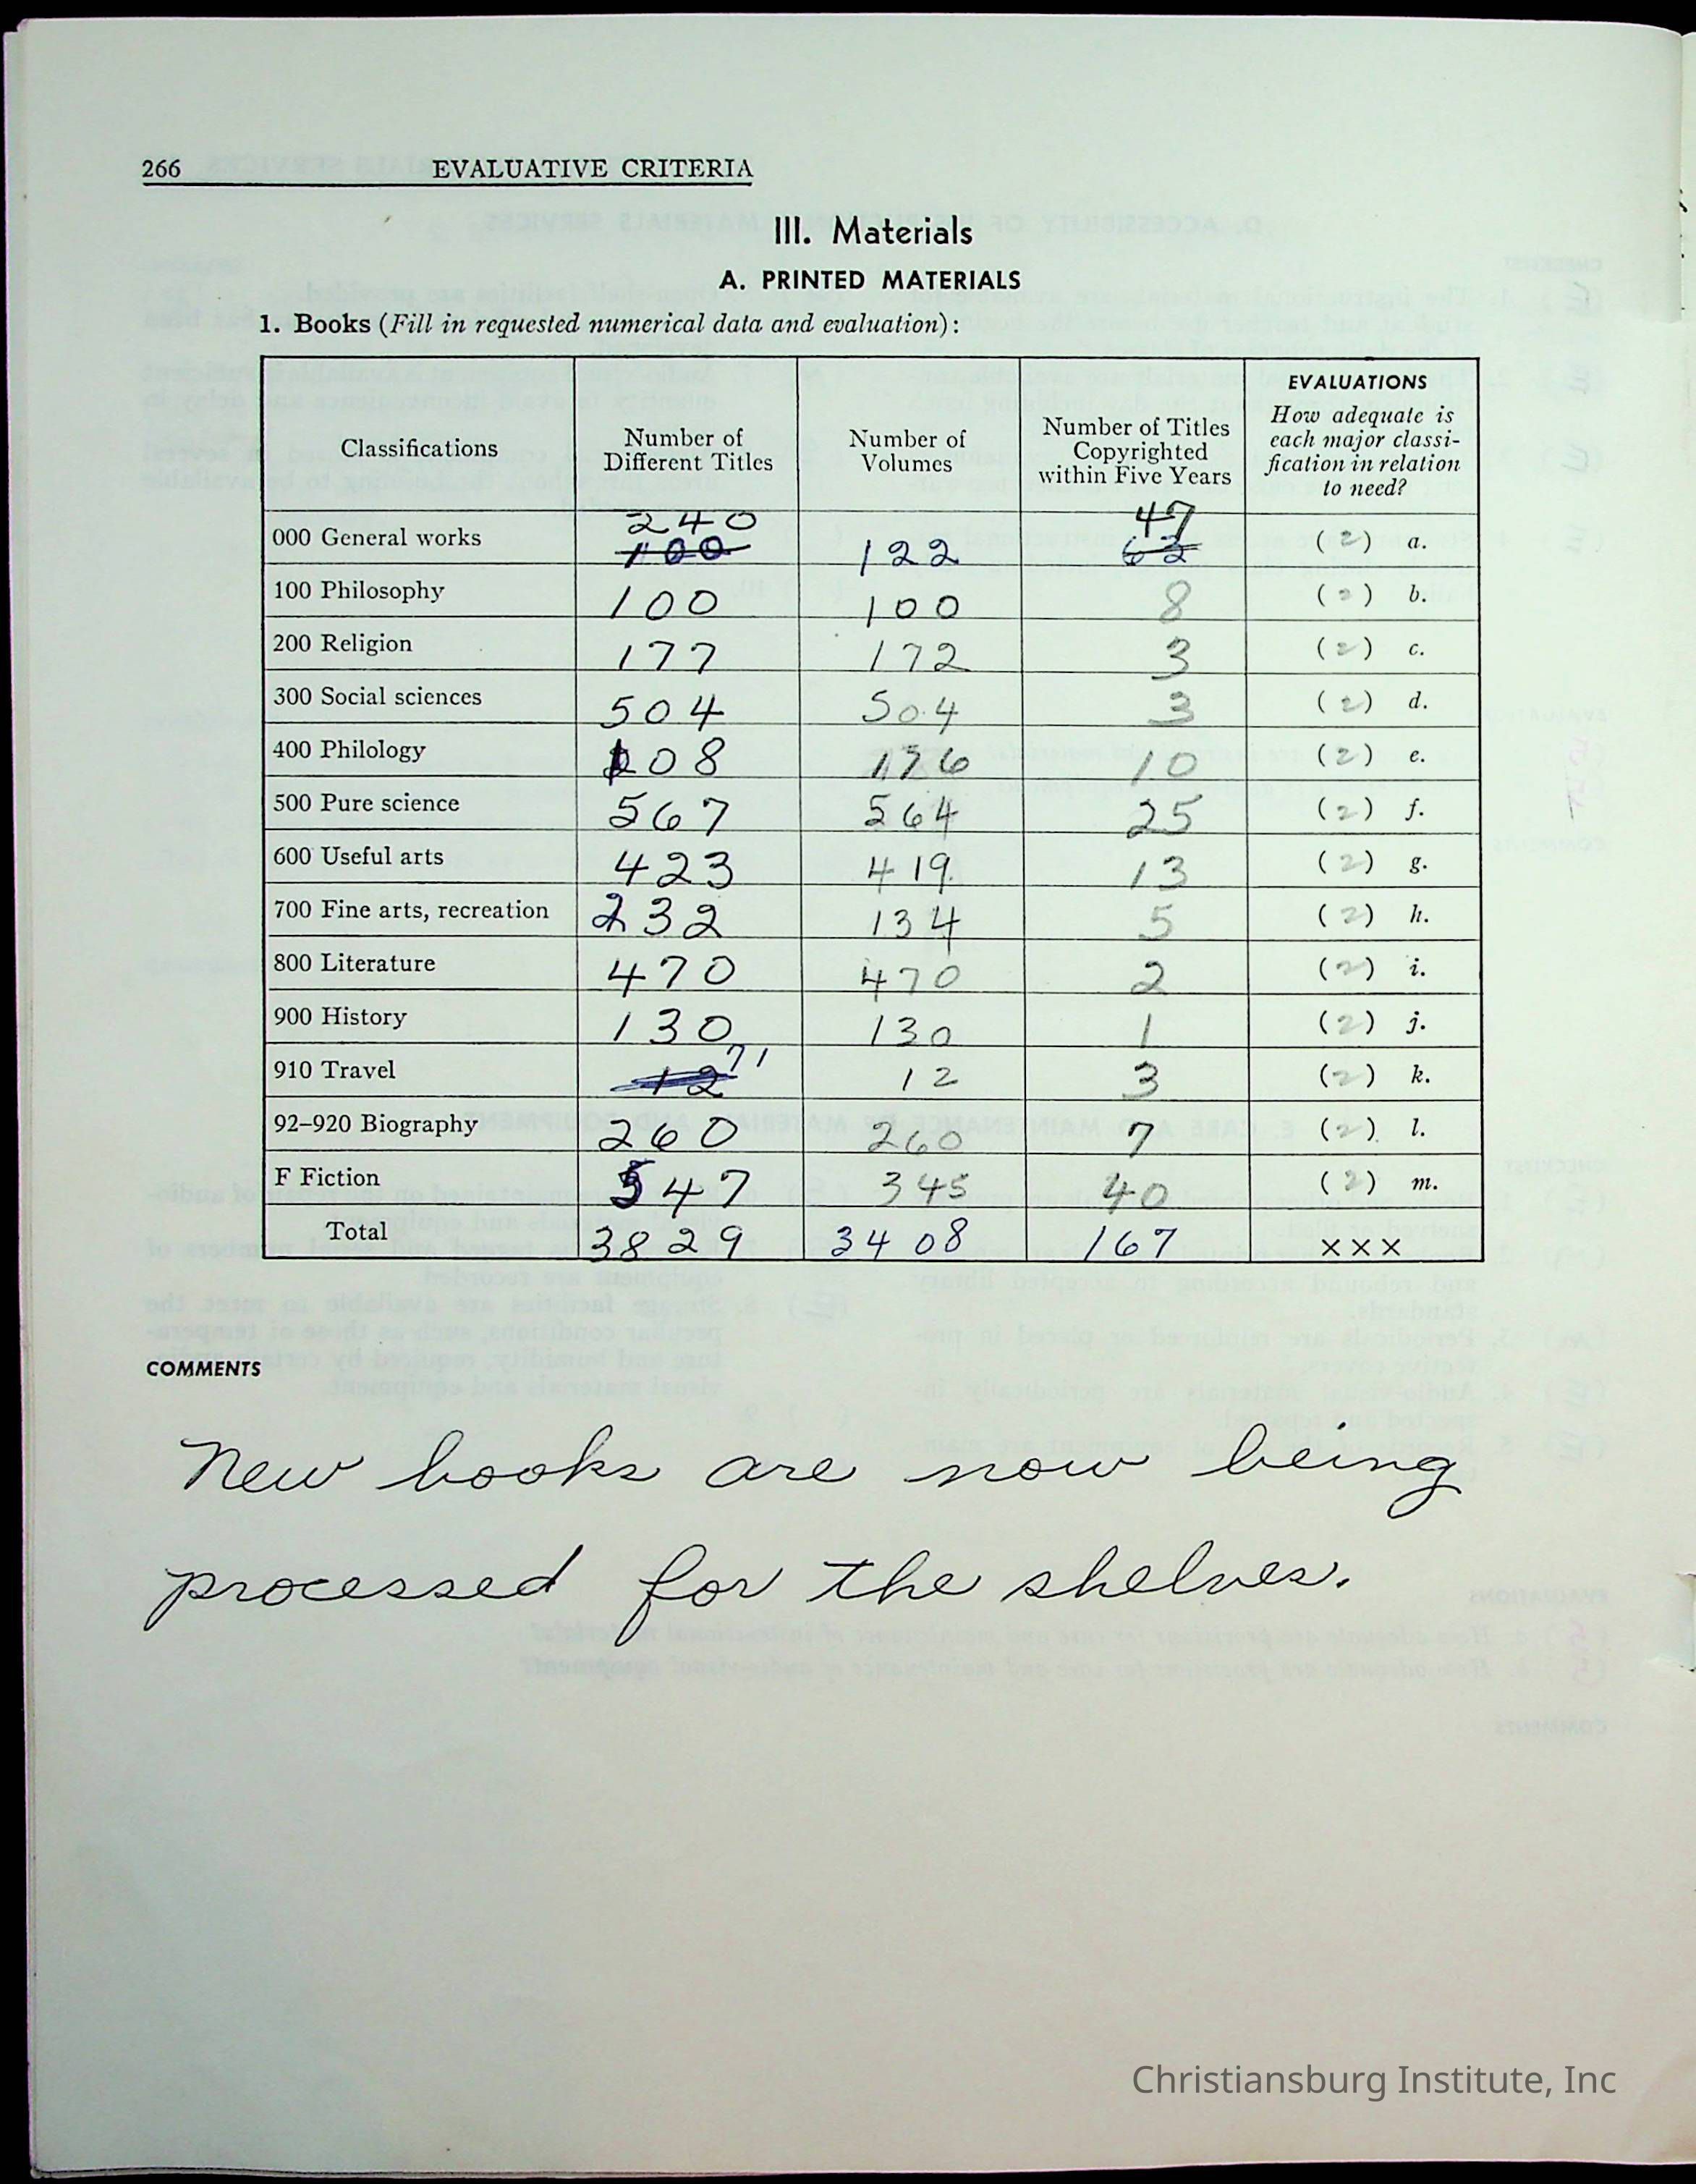 266 EVALUATIVE CRITERIA
III. Materials
A. PRINTED MATERIALS
1. Books (Fill in requested numerical data and evaluation):
Classifications Number of Different Titles Number of Volumes Number of Titles Copyrighted within Five Years EVALUATIONS How adequate is each major classi-fication in relation to need?
240 47
000 General works 100 122 62 (2) a.
100 Philosophy 100 100 8 (2) b.
200 Religion 177 172 3 (2) c.
300 Social sciences 504 504 3 (2) d.
400 Philology 108 176 10 (2) e.
500 Pure science 567 564 25 (2) f.
600 Useful arts 423 419 13 (2) g.
700 Fine arts, recreation 232 134 5 (2) h.
800 Literature 470 470 2 (2) i.
900 History 130 130 1 (2) j.
910 Travel 12 71 12 3 (2) k.
92–920 Biography 260 260 7 (2) l.
F Fiction 547 345 40 (2) m.
Total 3829 3408 167 x x x
COMMENTS
New books are now being
processed for the shelves.
Christiansburg Institute, Inc